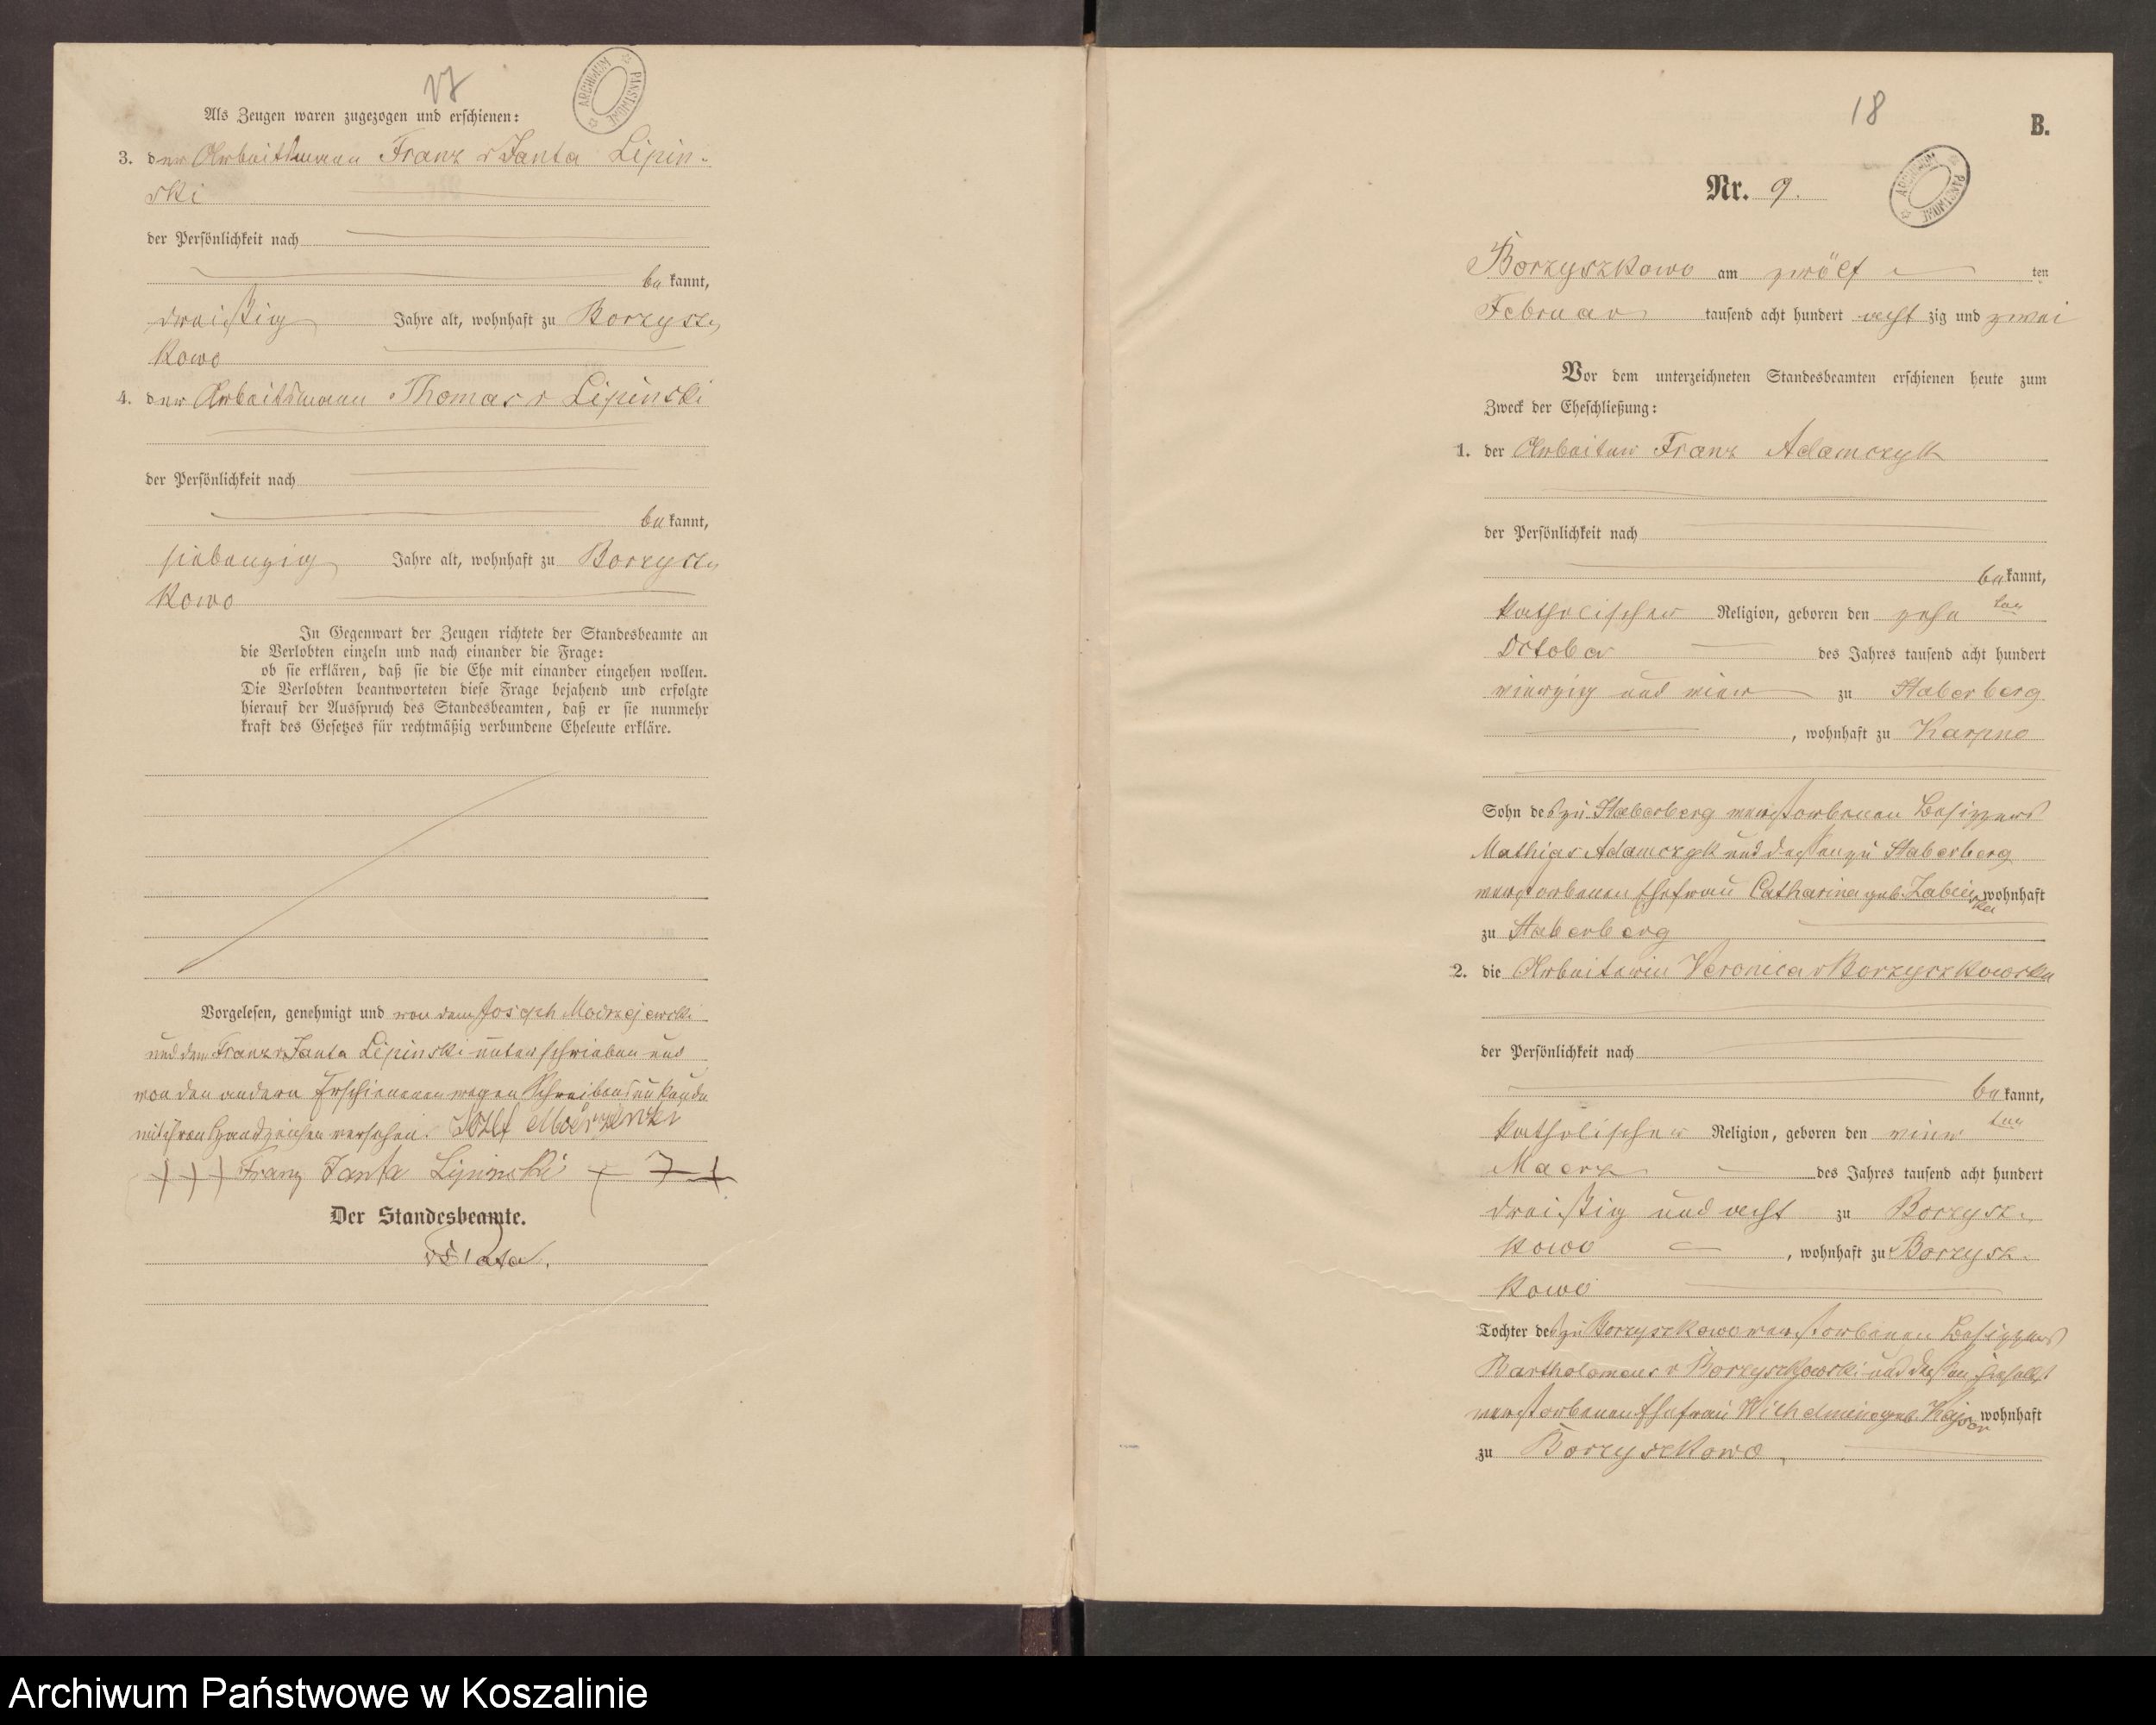 17
ARCHIWUM PAŃSTWOWE
Als Zeugen waren zugezogen und erschienen:
3. der Arbeitsmann Franz v Janta Lipin-
ski
der Persönlichkeit nach
be kannt,
dreißig Jahre alt, wohnhaft zu Borzysz-
kowo
4. der Arbeitsmann Thomas v Lipinski
der Persönlichkeit nach
be kannt,
siebenzig Jahre alt, wohnhaft zu Borzysz-
kowo
In Gegenwart der Zeugen richtete der Standesbeamte an
die Verlobten einzeln und nach einander die Frage:
ob sie erklären, daß sie die Ehe mit einander eingehen wollen.
Die Verlobten beantworteten diese Frage bejahend und erfolgte
hierauf der Ausspruch des Standesbeamten, daß er sie nunmehr
kraft des Gesetzes für rechtmäßig verbundene Eheleute erkläre.
Vorgelesen, genehmigt und von dem Joseph Modrzejewski
und dem Franz v Janta Lipinski unterschrieben und
von den andern Erschienenen wegen Schreibensunkunde
mit ihren Handzeichen versehen.
+ + + Franz Janta Lipinski + + +
Der Standesbeamte.
18
B.
Nr. 9.
ARCHIWUM PAŃSTWOWE
Borzyszkowo am zwölf ten
Februar tausend acht hundert acht zig und zwei
Vor dem unterzeichneten Standesbeamten erschienen heute zum
Zweck der Eheschließung:
1. der Arbeiter Franz Adamczyk
der Persönlichkeit nach
be kannt,
katholischer Religion, geboren den zehn ten
October des Jahres tausend acht hundert
vierzig und vier zu Haberberg
, wohnhaft zu Karpno
Sohn des zu Haberberg verstorbenen Besitzers
Mathias Adamczyk und dessen zu Haberberg
verstorbenen Ehefrau Catharina geb. wohnhaft
zu Haberberg
2. die Arbeiterin Veronica v Borzyszkowska
der Persönlichkeit nach
be kannt,
katholischer Religion, geboren den vier ten
Maerz des Jahres tausend acht hundert
dreißig und acht zu Borzysz-
kowo , wohnhaft zu Borzysz-
kowo
Tochter des zu Borzyszkowo verstorbenen Besitzers
Bartholomeus v Borzyszkowski und dessen daselbst
verstorbenen Ehefrau Wilhelmine geb. wohnhaft
zu Borzyszkowo
Archiwum Państwowe w Koszalinie